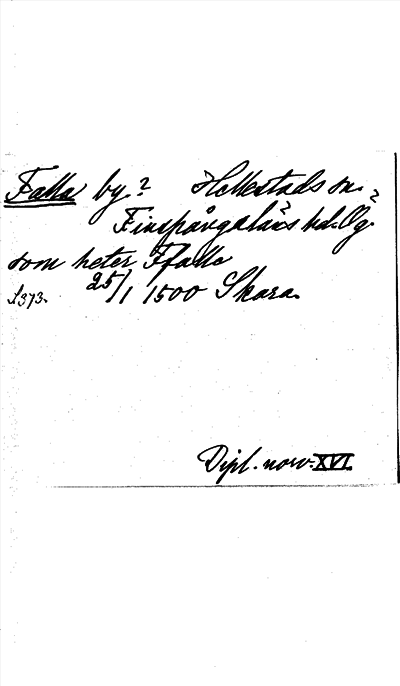 Falla by? Hellestads sn.?
Finspångaläns hd. Ög.
som heter Ffalle
S 373. 25/1 1500 Skara.
Dipl. norv. XVI.